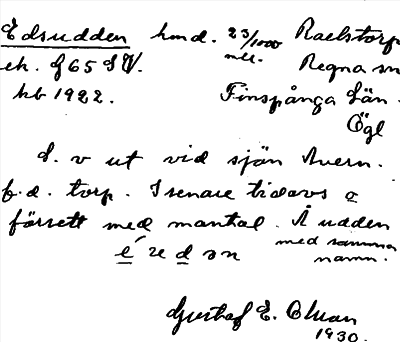 Edsudden hmd. 23/1000 mtl. Raelstorp
ek. f 65 SV. Regna sn
kb 1922. Finspånga Län.
Ögl
L. v ut vid sjön Avern.
f.d. torp. I senare tid avs o
försett med mantal. Å udden
med samma namn.
Gustaf E. Olsson
1930.